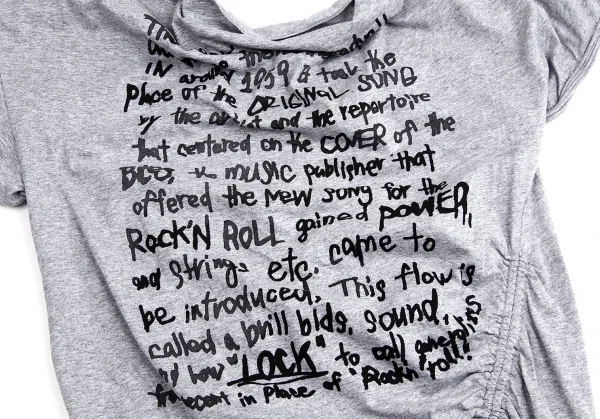 IN 1959 & took the
Place of the ORIGINAL SONG
by the artist and the repertoire
that centered on the COVER of the
music publisher that
offered the New song for the
Rock'N ROLL gained poWER,
and strings etc. came to
be introduced. This flow is
called a brill blds. sound,
now "LOCK" to call
in place of "Rock'n" roll!